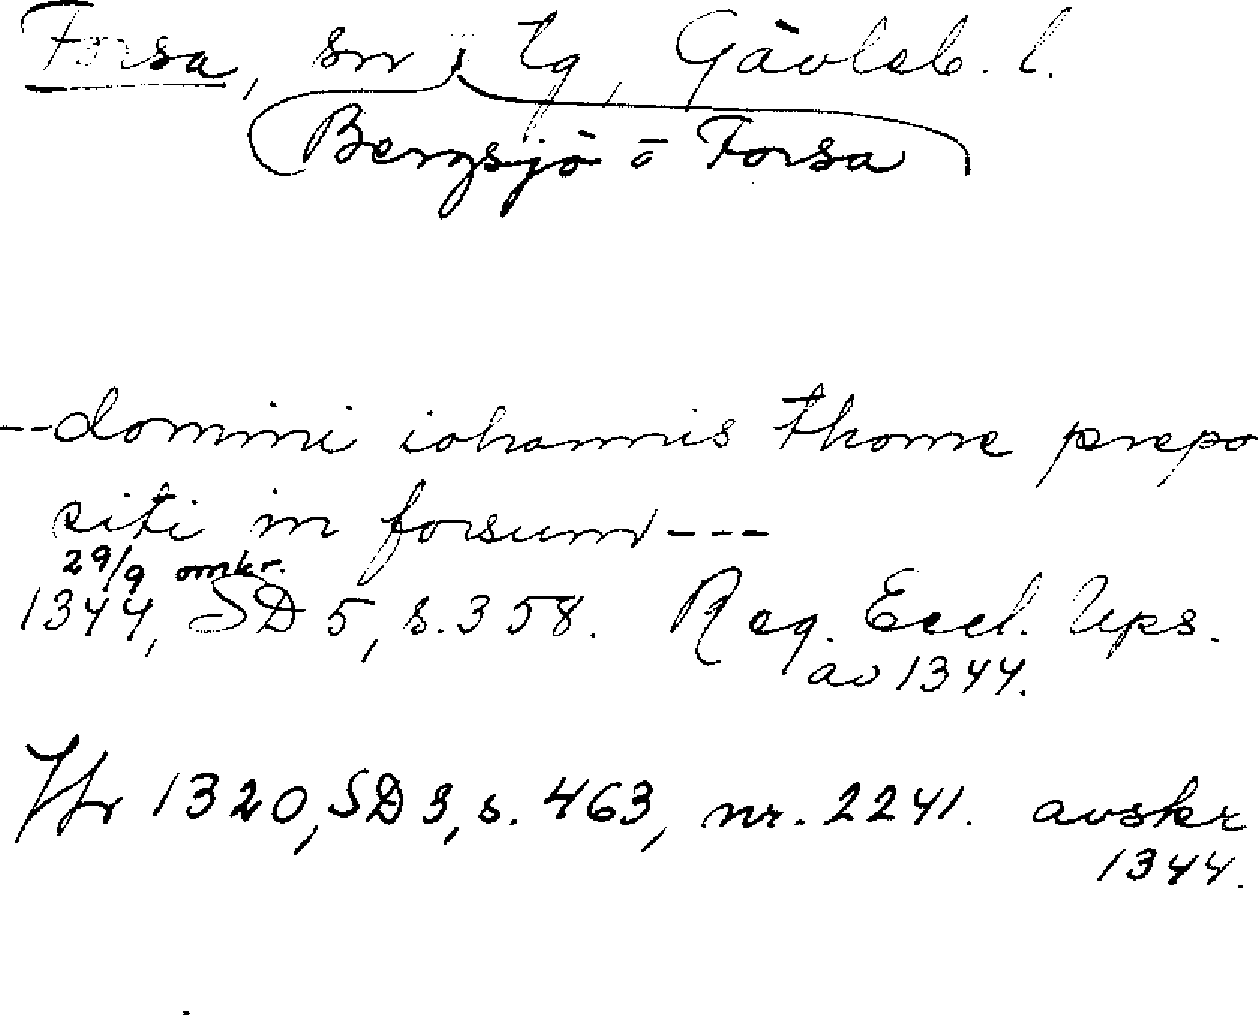 Forsa, sn i tg, Gävleb. l.
Bergsjö o Forsa
--domini iohannis thome prepo
siti in forsum---
29/9 omkr.
1344, SD 5, s. 358. Reg. Eccl. Ups.
av 1344.
Jfr 1320, SD 3, s. 463, nr. 2241. avskr
1344.